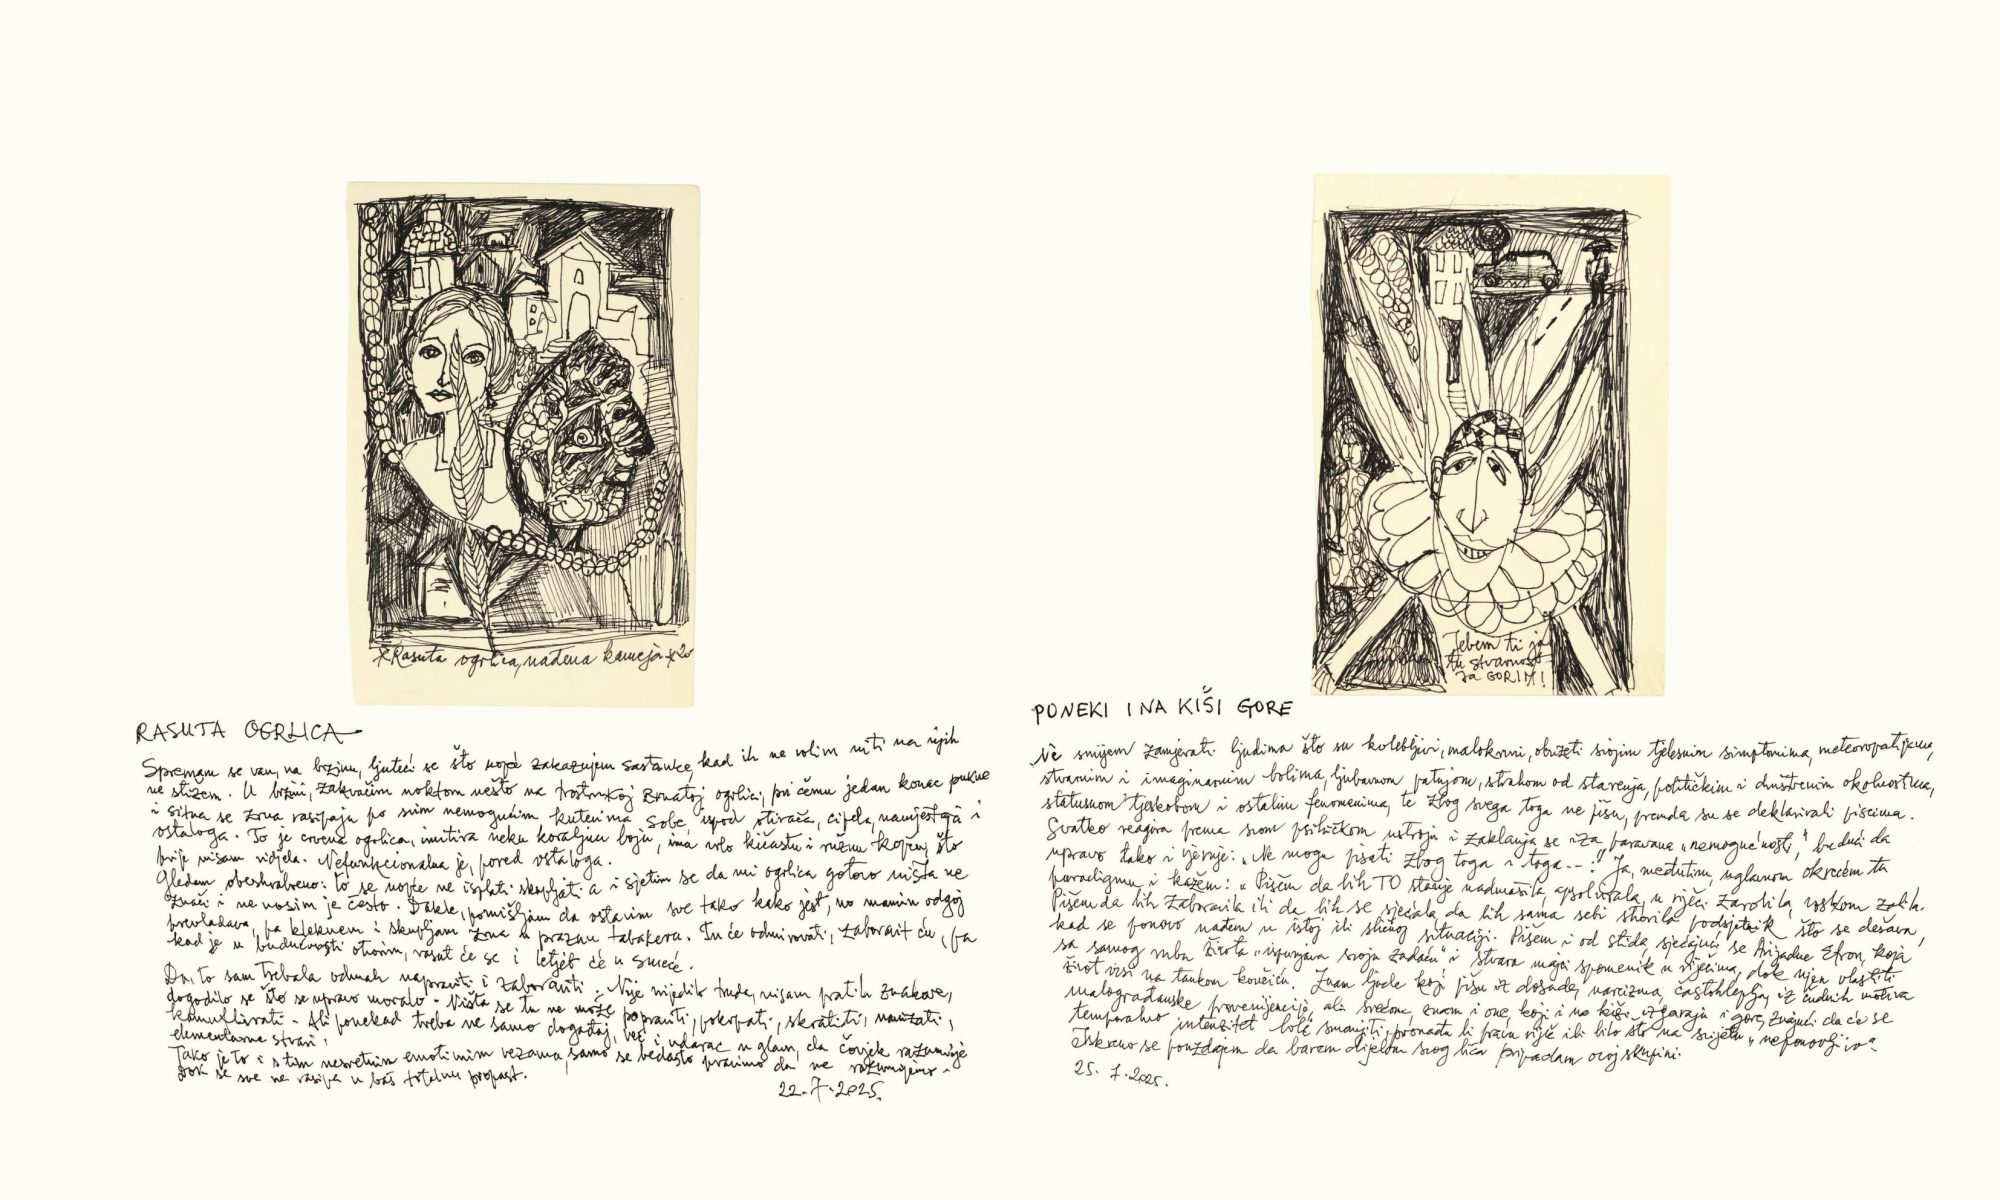 * Rasuta ogrlica, nađena kameja *
RASUTA OGRLICA
Spremam se van, na brzinu, ljuteći se što uopće zakazujem sastanke, kad ih ne volim niti na njih
ne stižem. U brzini, zakvačim noktom nešto na trostrukoj ogrlici, pri čemu jedan konac pukne
i sitna se zrna rasipaju po svim nemogućim kutevima sobe, ispod otirača, cipela, namještaja i
ostaloga. To je crvena ogrlica, imitira neku koraljnu boju, ima vrlo kičastu i ružnu kopču, što
prije nisam vidjela. Nefunkcionalna je, pored ostaloga.
Gledam obeshrabreno: to se uopće ne isplati skupljati a i sjetim se da mi ogrlica gotovo ništa ne
znači i ne nosim je često. Dakle, pomišljam da ostavim sve tako kako jest, no manirn odgoj
prevladava, pa kleknem i skupljam zrna u praznu tabakeru. Tu će odmirovati, zaboravit ću, pa
kad je u budućnosti otvorim, rasut će se i letjet će u smeće.
Da, to sam trebala odmah napraviti i zaboraviti. Nije vrijedilo truda, nisam pratila znakove,
dogodilo se što se upravo moralo. Ništa se tu ne može popraviti, pokrpati, skratiti, nanizati,
kamuflirati. Ali ponekad treba ne samo događaj, već i udarac u glavu, da čovjek razumije
elementarne stvari.
Tako je to i s tim nesretnim emotivnim vezama, samo se bedasto pravimo da ne razumijemo
dok se sve ne raspe u baš totalnu propast.
22.7.2025.
Jebem ti ja
tu stvarnost
ja GORIM!
PONEKI I NA KIŠI GORE
Ne smijem zamjerati ljudima što su kolebljivi, malokrvni, obuzeti svojim tjelesnim simptomima, meteoropatijama,
stvarnim i imaginarnim bolima, ljubavnom patnjom, strahom od starenja, političkim i društvenim okolnostima,
statusnom tjeskobom i ostalim fenomenima, te zbog svega toga ne pišu, premda su se deklarirali piscima.
Svatko reagira prema svom psihičkom ustroju i zaklanja se iza paravana „nemogućnosti“, budući da
upravo tako i vjeruje: „Ne mogu pisati zbog toga i toga...“ Ja, međutim, uglavnom okrećem tu
paradigmu i kažem: „Pišem da bih TO stanje nadmašila, apsolvirala, u riječi zarobila, voskom zalila.
Pišem da bih zaboravila ili da bih se sjećala, da bih sama sebi stvorila podsjetnik što se dešava,
kad se ponovo nađem u istoj ili sličnoj situaciji. Pišem i od stida, sjećajući se Arijadne Efron, koja
sa samog ruba života „ispunjava svoju zadaću“ i stvara majci spomenik u riječima, dok njen vlastiti
život visi na tankom končiću. Znam ljude koji pišu iz dosade, narcizma, častohleplja, iz čudnih motiva
malograđanske provenijencije, ali srećom, znam i one, koji i na kiši izgaraju i gore, znajući da će se
temporalno intenzitet boli smanjiti, pronađu li pravu riječ ili bilo što na svijetu „neponovljivo“.
Iskreno se pouzdajem da barem dijelom svog lica pripadam ovoj skupini.
25.7.2025.